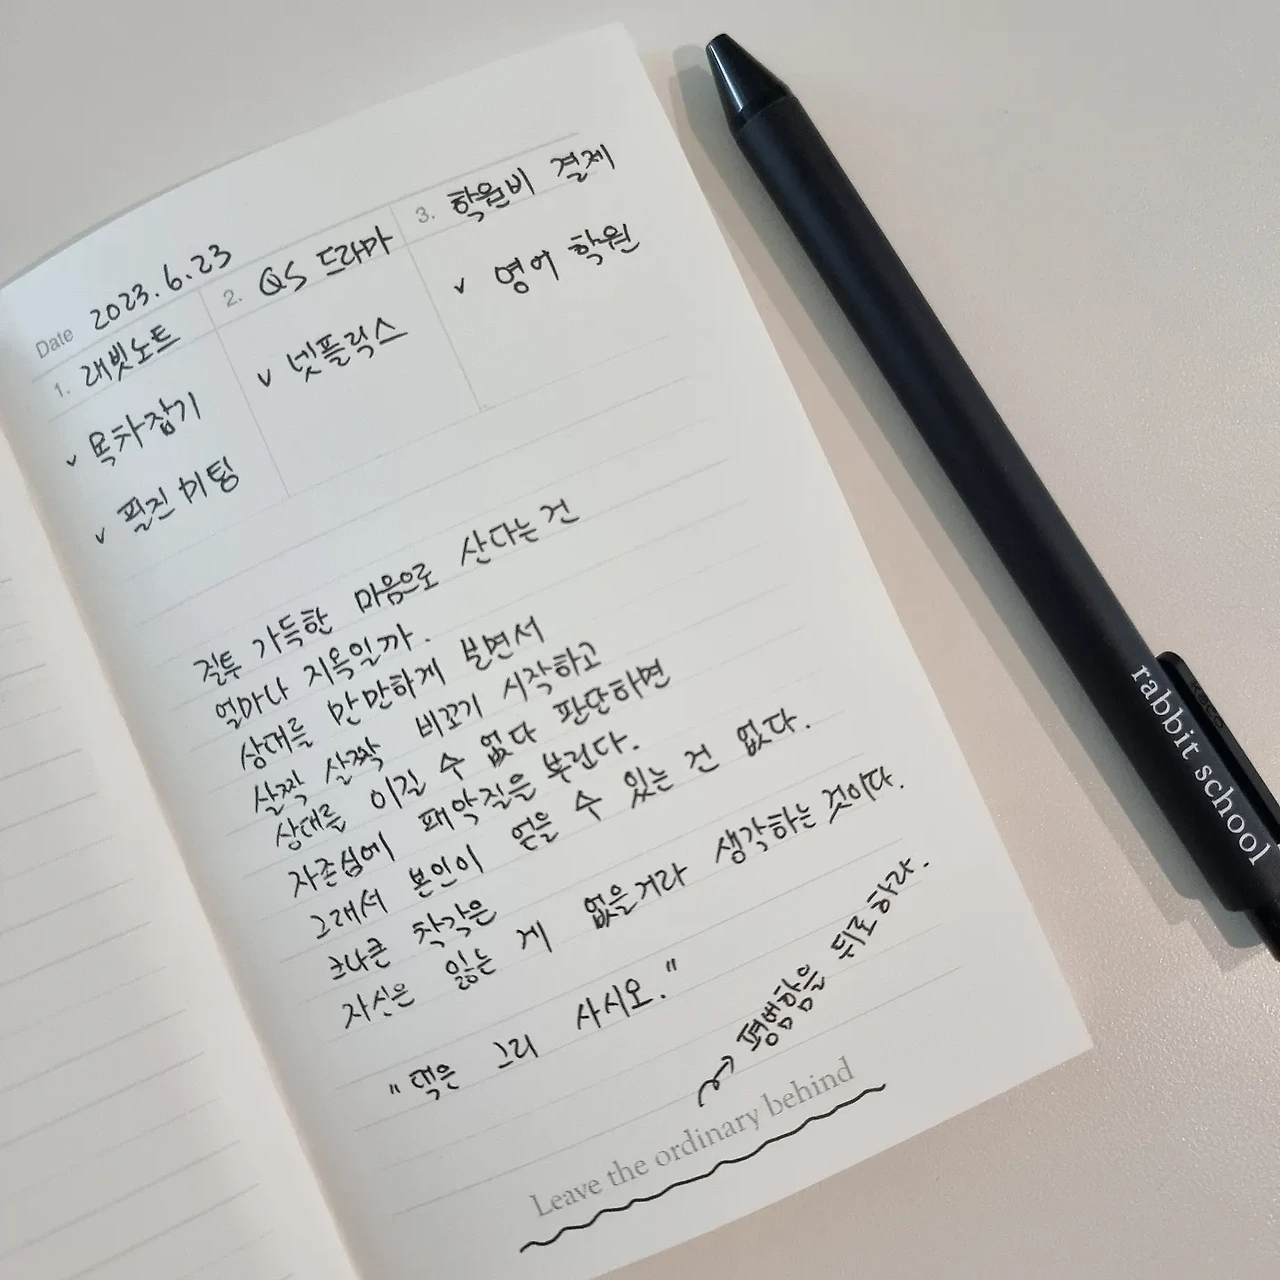 Date 2023.6.23
1. 래빗노트
v 목차잡기
v 필진 미팅
2. QS 드라마
v 넷플릭스
3. 학원비 결제
v 영어 학원
질투 가득한 마음으로 산다는 건
얼마나 지옥일까.
상대를 만만하게 보면서
살짝 살짝 비꼬기 시작하고
상대를 이길 수 없다 판단하면
자존심에 패악질을 부린다.
그래서 본인이 얻을 수 있는 건 없다.
크나큰 착각은
자신은 잃는 게 없을거라 생각하는 것이다.
"댁은 그리 사시오."
평범함을 뒤로 하라.
Leave the ordinary behind
rabbit school